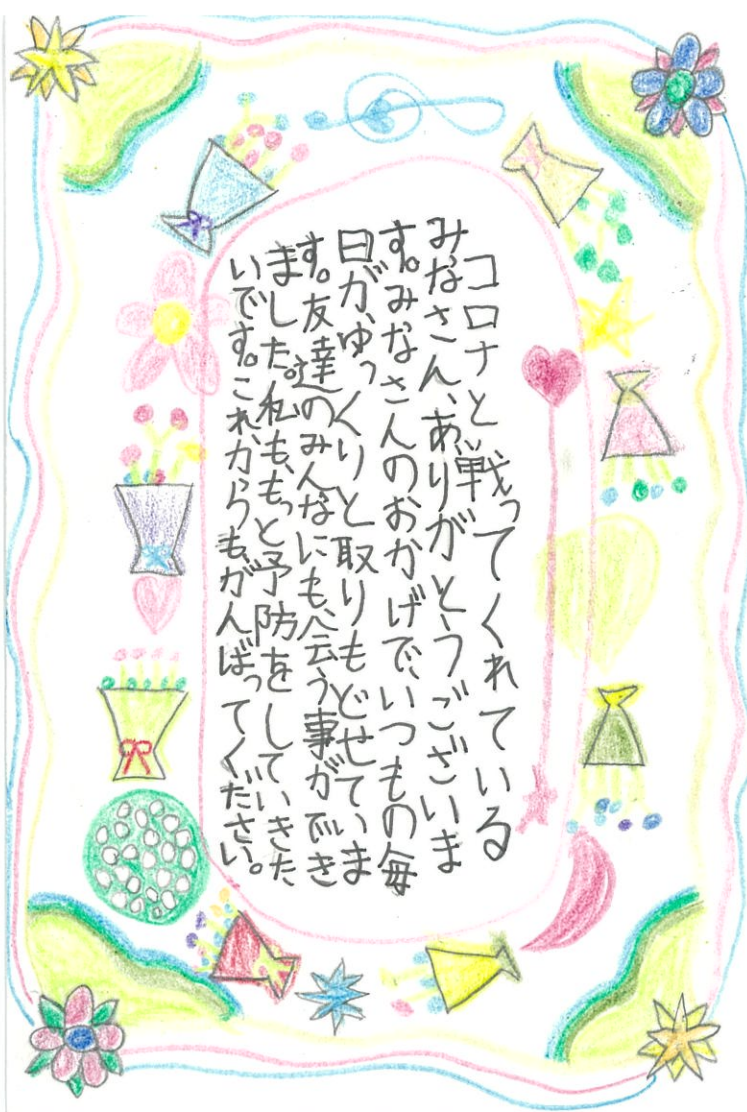 コロナと戦ってくれている
みなさん、ありがとうございま
す。みなさんのおかげで、いつもの毎
日が、ゆっくりと取りもどせていま
す。友達のみんなにも、会う事ができ
ました。私も、もっと予防をしていきた
いです。これからも、がんばってください。